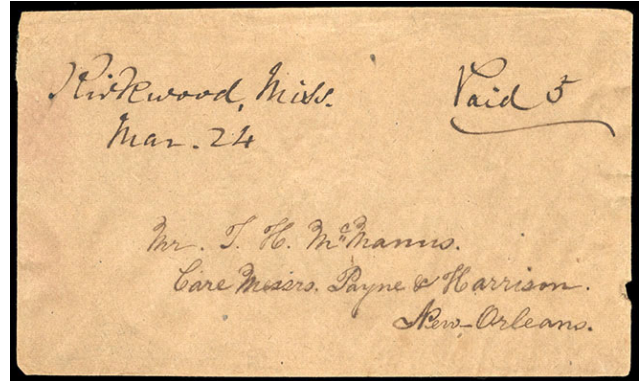 Kirkwood, Miss. Paid 5
Mar. 24
Mr. T. H. McManus.
Care Messrs. Payne & Harrison.
New-Orleans.